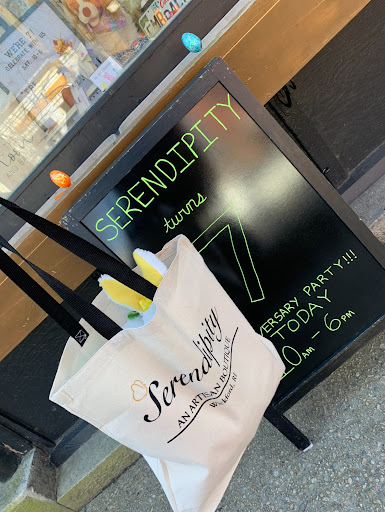 WE'RE 7!
SERENDIPITY
turns
7
VERSARY PARTY!!!
TODAY
10AM - 6PM
Serendipity
AN ARTISAN BOUTIQUE